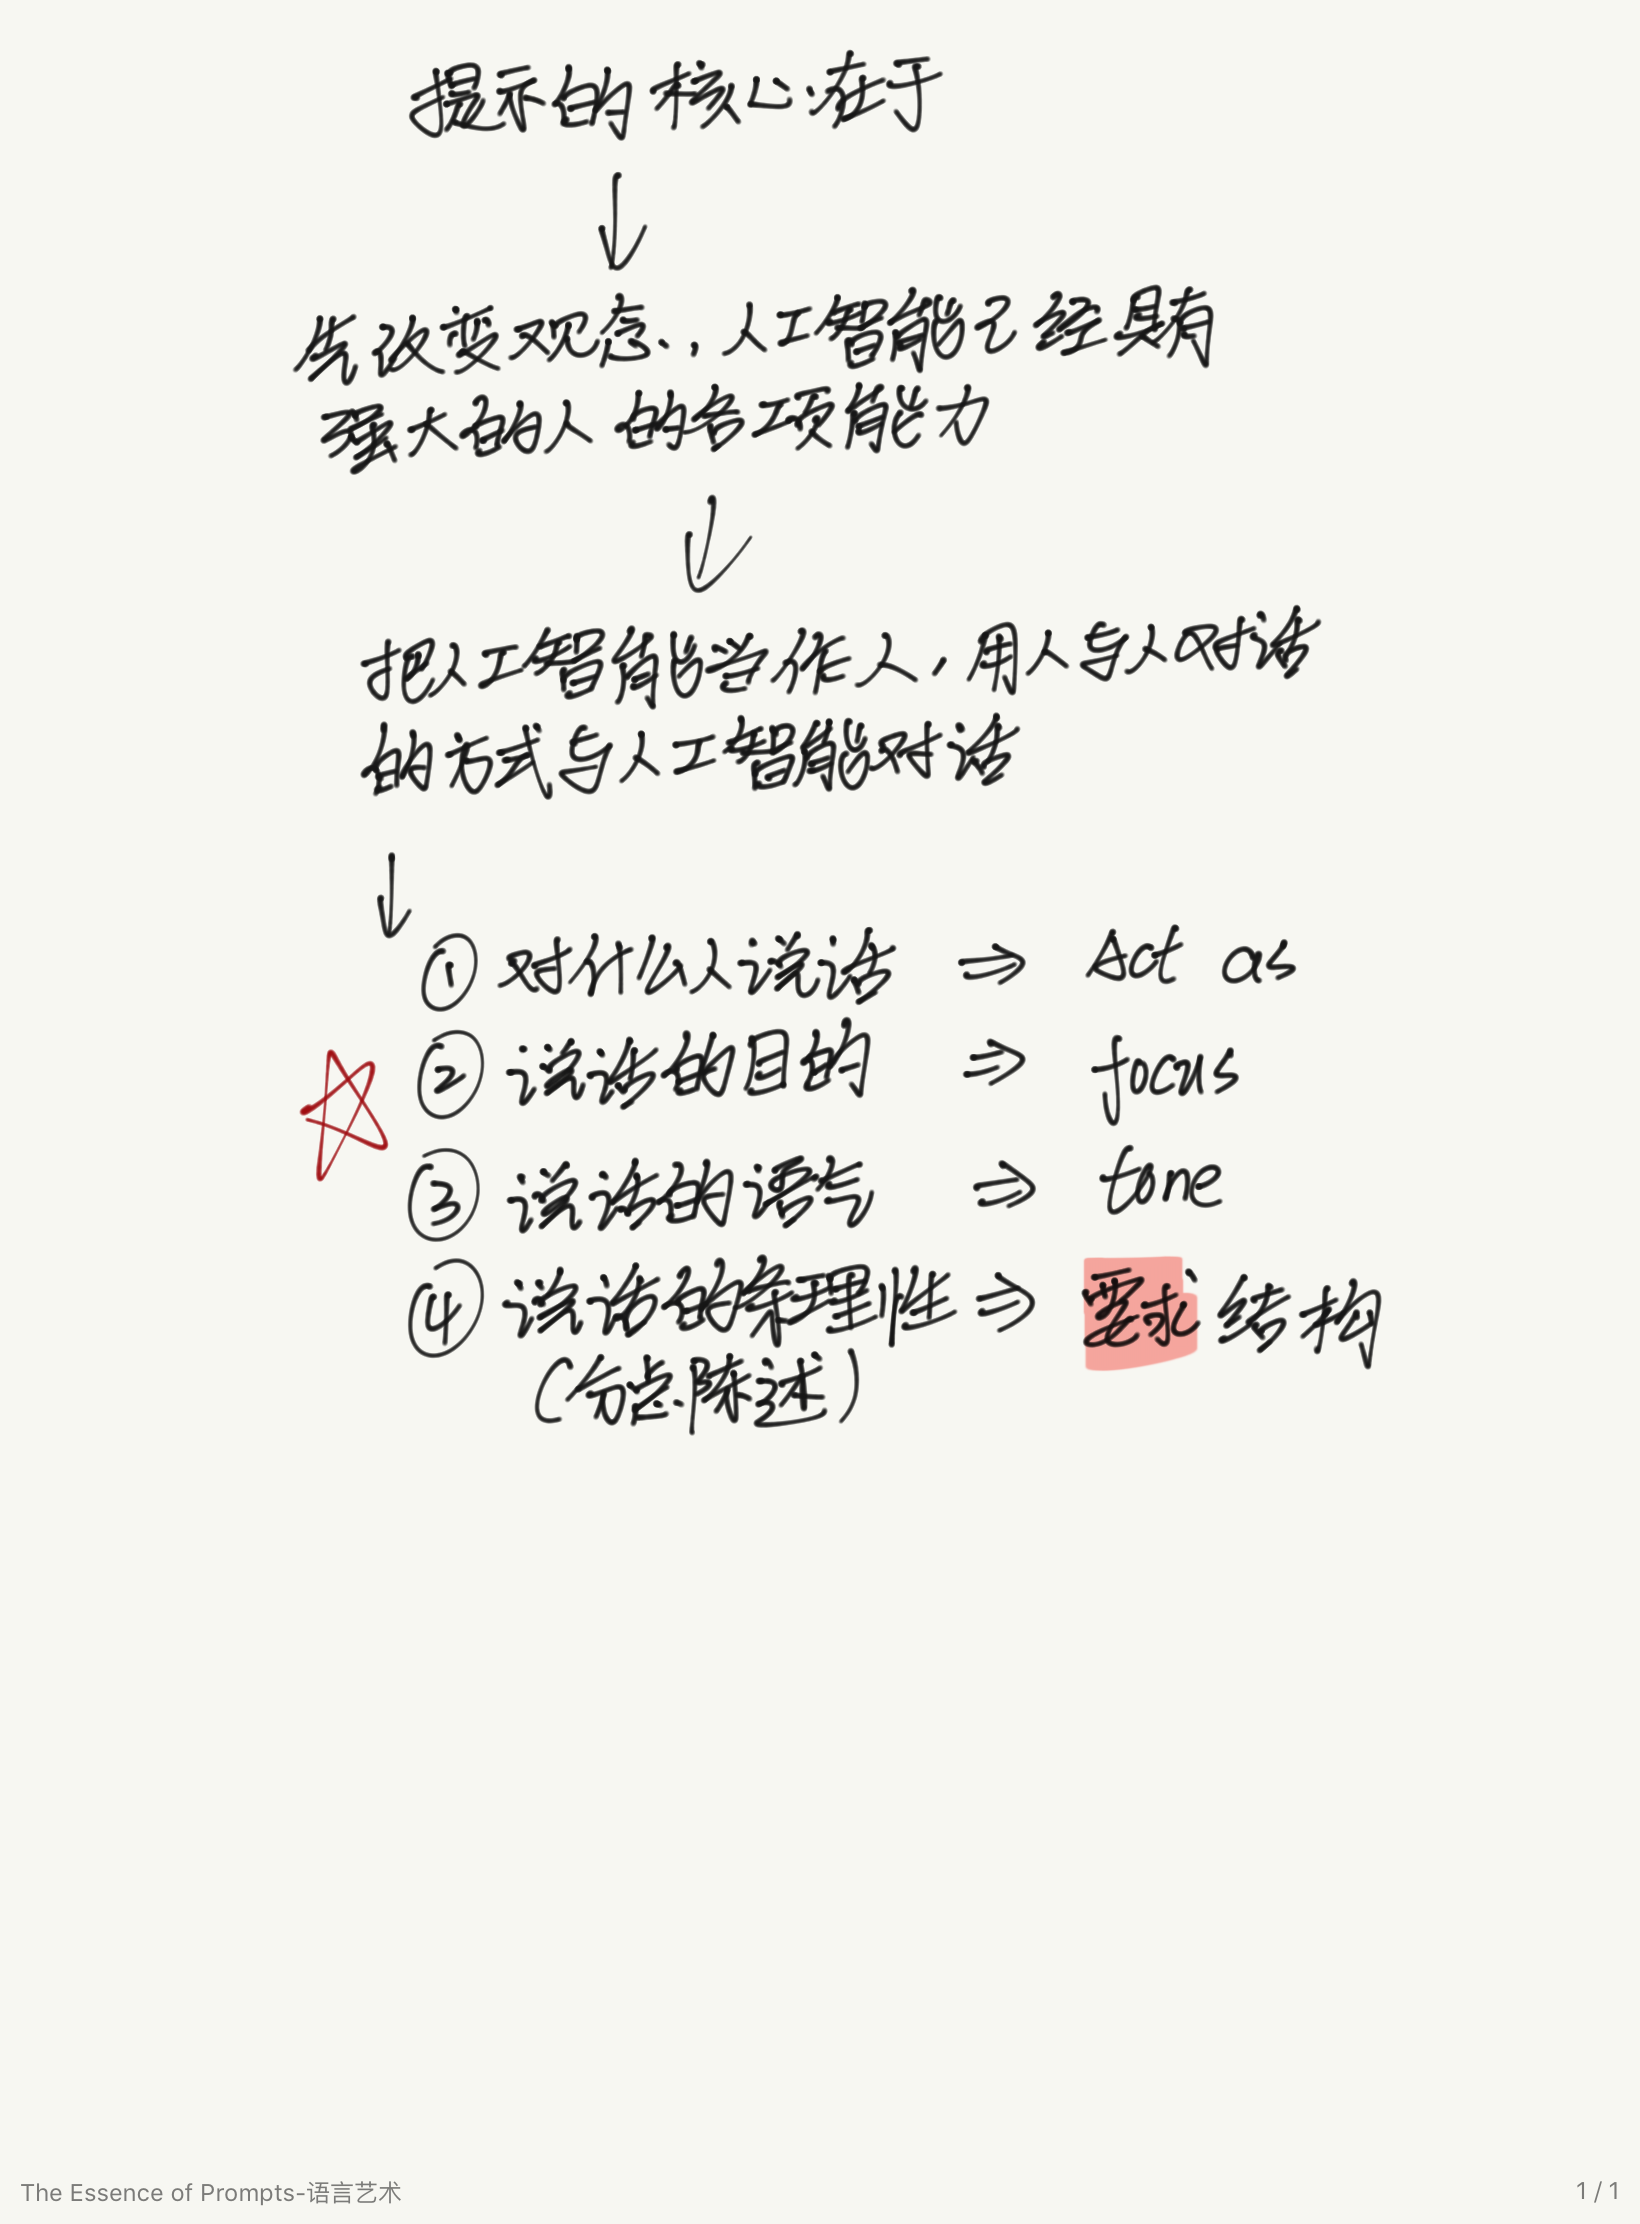 提示的核心在于
先改变观念,人工智能已经具有
强大的人的各项能力
把人工智能当作人,用人与人对话
的方式与人工智能对话
① 对什么人说话 ⇒ Act as
② 说话的目的 ⇒ focus
③ 说话的语气 ⇒ tone
④ 说话的条理性 ⇒ 要求结构
(分点陈述)
The Essence of Prompts-语言艺术
1 / 1